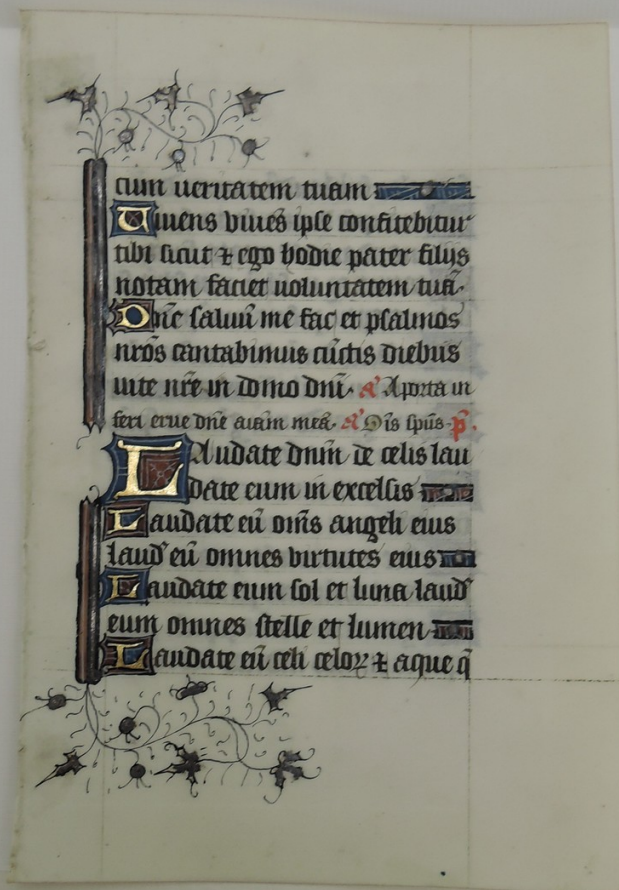 cum ueritatem tuam
Uiuens viues ipse confitebitur
tibi sicut ⁊ ego hodie pater filijs
notam faciet uoluntatem tuā.
Dn̄e saluū me fac et psalmos
nr̄os cantabimus cūctis diebus
uite nr̄e in domo dn̄i. a᷑ A porta in
feri erue dn̄e aīam meā. a᷑ Oīs sp̄us. p̄.
Laudate dn̄m de celis lau
date eum in excelsis
Laudate eū om̄s angeli eius
laud' eū omnes virtutes eius
Laudate eum sol et luna laud'
eum omnes stelle et lumen
Laudate eū celi celoꝝ ⁊ aque q̄